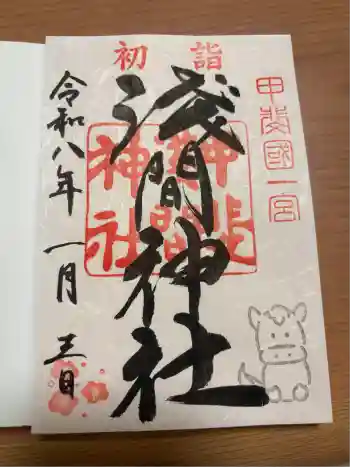 初詣
甲斐國一宮
淺間神社
令和八年一月三日